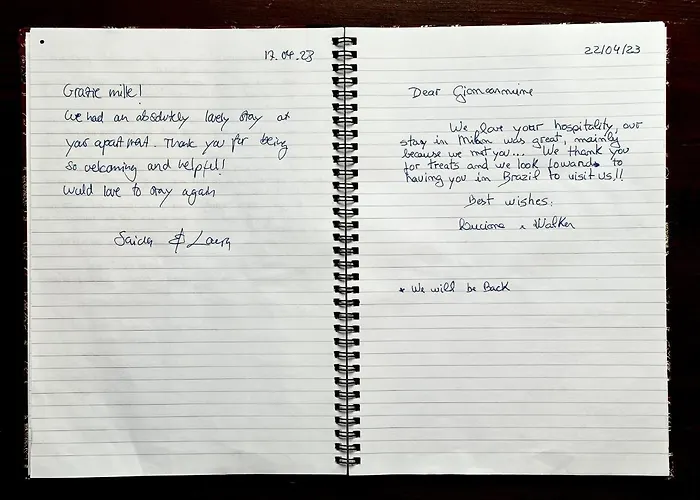 17.04.23
Grazie mille!
We had an absolutely lovely stay at
your apartment. Thank you for being
so welcoming and helpful!
Would love to stay again
Saida & Laura
22/04/23
Dear Giancarmine
We love your hospitality, our
stay in Milan was great, mainly
because we met you... We thank you
for treats and we look fowards to
having you in Brazil to visit us!!
Best wishes,
Luciana & Walker
* We will be Back